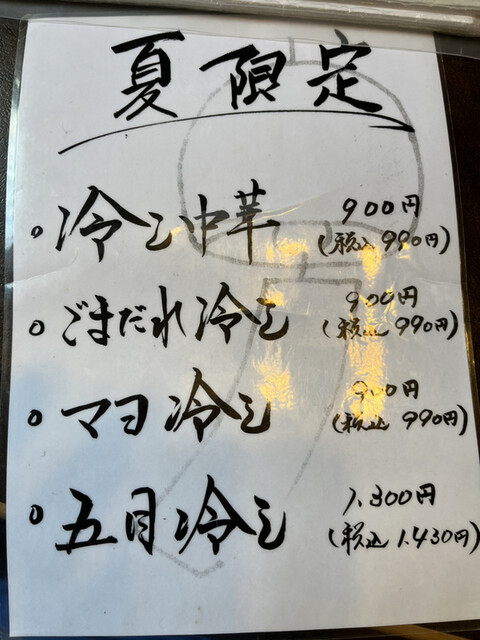 夏限定
○ 冷し中華 900円
(税込 990円)
○ ごまだれ冷し 900円
(税込 990円)
○ マヨ冷し 900円
(税込 990円)
○ 五目冷し 1,300円
(税込 1,430円)